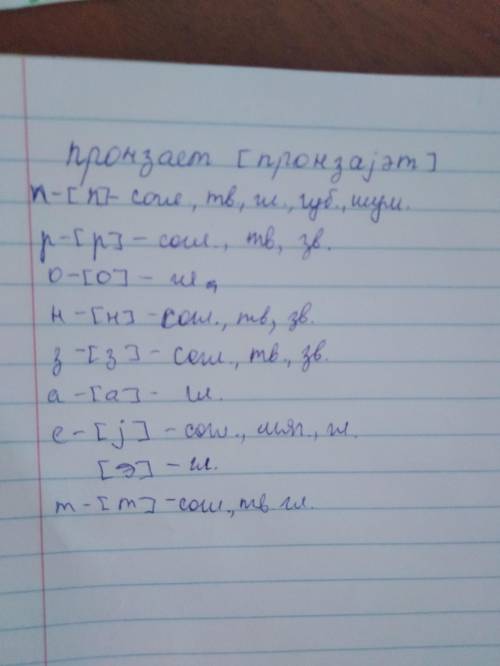 пронзает [пронзаjэт]
п-[п]- согл., тв, гл., губ., шум.
р-[р] - согл., тв, зв.
о-[о] - гл.
н-[н] - согл., тв, зв.
з-[з] - согл., тв., зв.
а-[а] - гл.
е-[j] - согл., мяг., гл.
[э] - гл.
т-[т] - согл., тв гл.